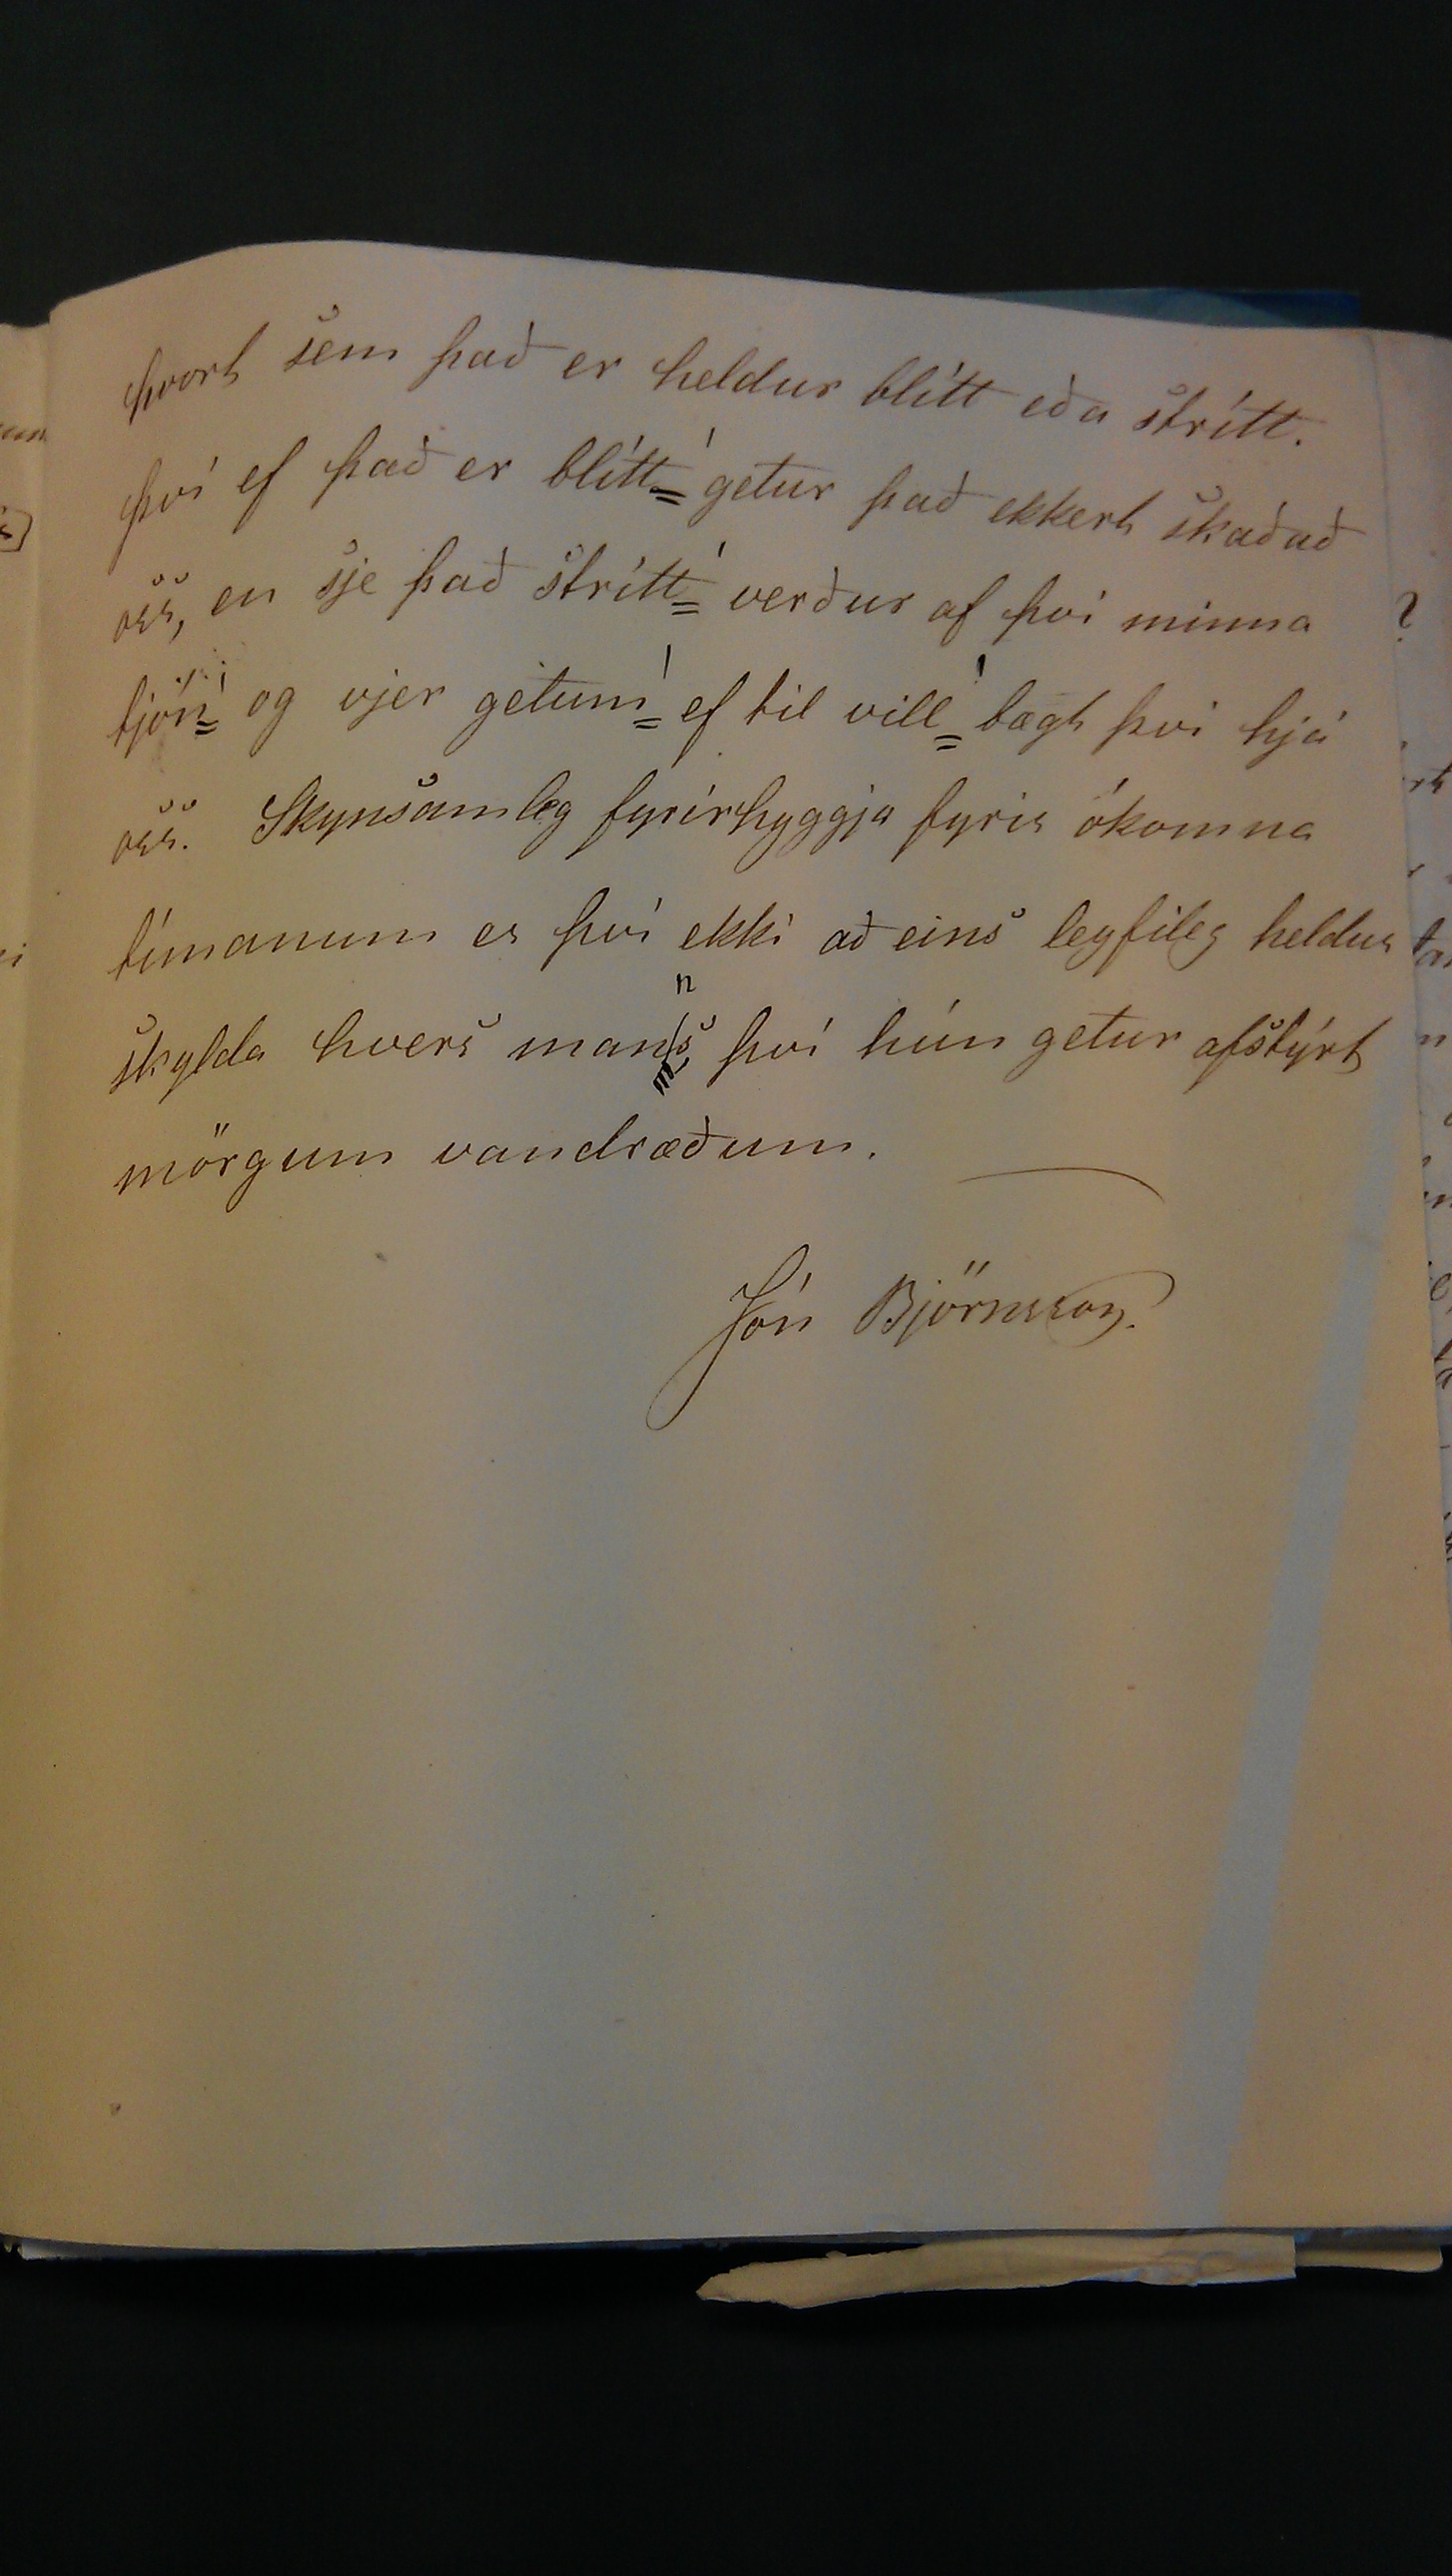 hvort sem það er heldur blítt eða strítt.
því ef það er blítt getur það ekkert skaðað
oss, en sje það strítt verður af því minna
tjón og vjer getum ef til vill bægt því hjá
oss. Skynsamleg fyrirhyggja fyrir ókomna
tímanum er því ekki að eins leyfileg heldur
skylda hvers manns því hún getur afstýrt
mörgum vandræðum.
Jón Björnsson.